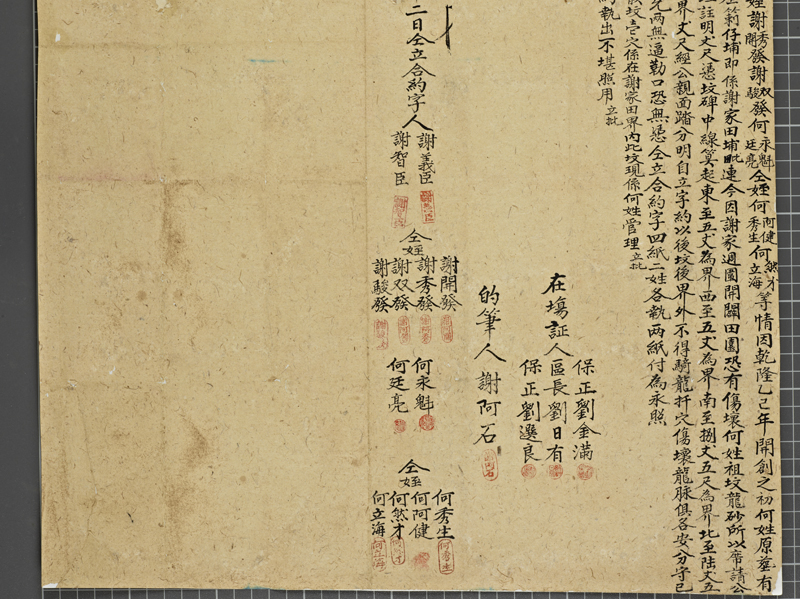 姪謝秀發謝双發何永魁仝姪何阿健何然才等情因乾隆乙己年開創之初何姓原塟有
開 駿 廷亮 秀生 立海
箣仔埔即係謝家田埔毗連今因謝家週圍開闢田園恐有傷壞何姓祖坟龍砂所以席請公
註明丈尺憑坟碑中線算起東至五丈為界西至五丈為界南至捌丈五尺為界北至陆丈五
界丈尺經公親面踏分明自立字約以後坟後界外不得騎龍扦穴傷壞龍脉俱各安分守己
兄两無逼勒口恐無憑仝立合約字四紙二姓各執两紙付為永照
坟壱穴係在謝家田界内此坟現係何姓管理立批
執出不堪照用立批
在塲証人
保正劉金滿
區長劉日有
保正劉選良
的筆人謝阿石
二日仝立合約字人
謝義臣
謝智臣
仝姪
謝開發
謝秀發
謝双發
謝駿發
何永魁
何廷亮
仝姪
何秀生
何阿健
何然才
何立海